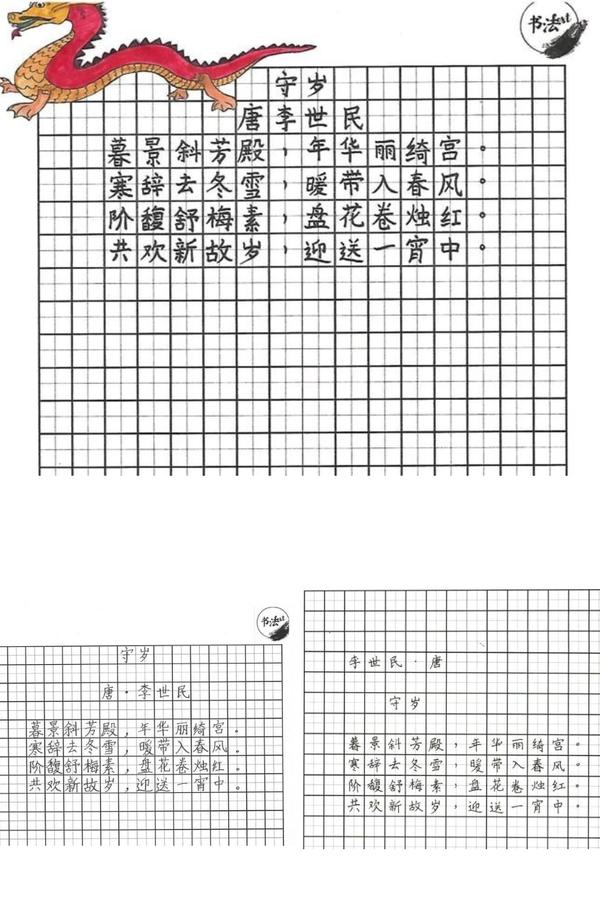 书法
守岁
唐李世民
暮景斜芳殿，年华丽绮宫。
寒辞去冬雪，暖带入春风。
阶馥舒梅素，盘花卷烛红。
共欢新故岁，迎送一宵中。
书法
守岁
唐·李世民
暮景斜芳殿，年华丽绮宫。
寒辞去冬雪，暖带入春风。
阶馥舒梅素，盘花卷烛红。
共欢新故岁，迎送一宵中。
李世民·唐
守岁
暮景斜芳殿，年华丽绮宫。
寒辞去冬雪，暖带入春风。
阶馥舒梅素，盘花卷烛红。
共欢新故岁，迎送一宵中。